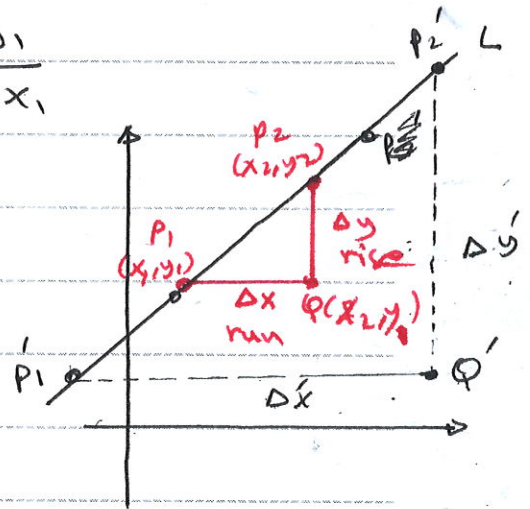 x₁
P₂′ L
P₂
(x₂,y₂)
P₁
(x₁,y₁)
Δy
rise
Δx
run
Q(x₂,y₁)
Δy′
P₁′
Q′
Δx′